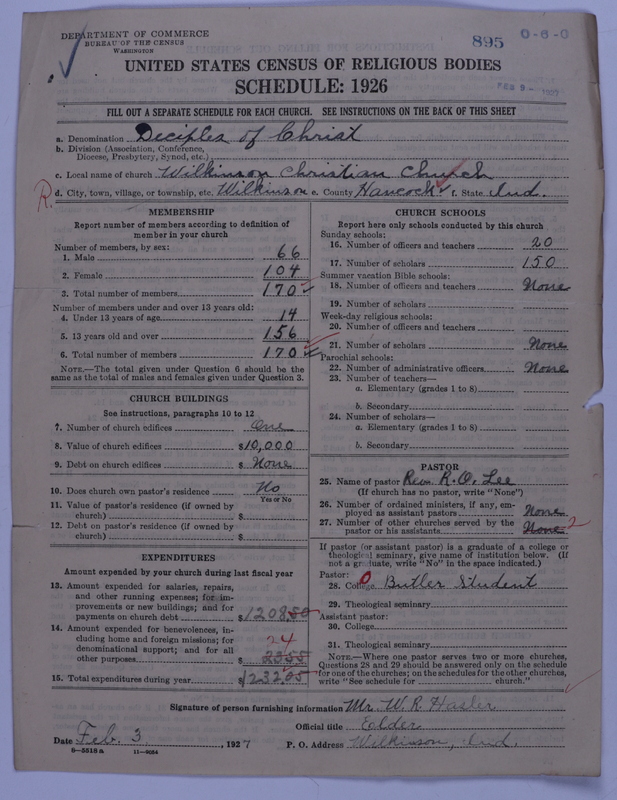 DEPARTMENT OF COMMERCE
BUREAU OF THE CENSUS
WASHINGTON
895
0-6-0
UNITED STATES CENSUS OF RELIGIOUS BODIES
SCHEDULE: 1926
FEB 9 - 1927
FILL OUT A SEPARATE SCHEDULE FOR EACH CHURCH. SEE INSTRUCTIONS ON THE BACK OF THIS SHEET
a. Denomination Deciples of Christ
b. Division (Association, Conference,
Diocese, Presbytery, Synod, etc.)
c. Local name of church Wilkinson Christian Church
R. d. City, town, village, or township, etc. Wilkinson e. County Hancock f. State Ind.
MEMBERSHIP
Report number of members according to definition of
member in your church
Number of members, by sex:
1. Male 66
2. Female 104
3. Total number of members 170
Number of members under and over 13 years old:
4. Under 13 years of age 14
5. 13 years old and over 156
6. Total number of members 170
NOTE.—The total given under Question 6 should be
same as the total of males and females given under Question 3.
CHURCH BUILDINGS
See instructions, paragraphs 10 to 12
7. Number of church edifices One
8. Value of church edifices $10,000
9. Debt on church edifices $ None
10. Does church own pastor's residence No
Yes or No
11. Value of pastor's residence (if owned by
church) $
12. Debt on pastor's residence (if owned by
church) $
EXPENDITURES
Amount expended by your church during last fiscal year
13. Amount expended for salaries, repairs,
and other running expenses; for im-
provements or new buildings; and for
payments on church debt $1208.50
14. Amount expended for benevolences, in-
cluding home and foreign missions; for
denominational support; and for all
24
other purposes $ 23.55
15. Total expenditures during year $1232.05
CHURCH SCHOOLS
Report here only schools conducted by this church
Sunday schools:
16. Number of officers and teachers 20
17. Number of scholars 150
Summer vacation Bible schools:
18. Number of officers and teachers None
19. Number of scholars
Week-day religious schools:
20. Number of officers and teachers
21. Number of scholars None
Parochial schools:
22. Number of administrative officers None
23. Number of teachers—
a. Elementary (grades 1 to 8)
b. Secondary
24. Number of scholars—
a. Elementary (grades 1 to 8)
b. Secondary
PASTOR
25. Name of pastor Rev. R. O. Lee
(If church has no pastor, write "None")
26. Number of ordained ministers, if any, em-
ployed as assistant pastors None
27. Number of other churches served by the
pastor or his assistants None 2
If pastor (or assistant pastor) is a graduate of a college or
theological seminary, give name of institution below. (If
not a graduate, write "No" in the space indicated.)
Pastor:
28. College 0 Butler Student
29. Theological seminary
Assistant pastor:
30. College
31. Theological seminary
NOTE.—Where one pastor serves two or more churches,
Questions 28 and 29 should be answered only on the schedule
for one of the churches; on the schedules for the other churches,
write "See schedule for church."
Signature of person furnishing information Mr. W. R. Hasler
Official title Elder
Date Feb. 3, 1927 P. O. Address Wilkinson, Ind.
8-5518 a 11-9054